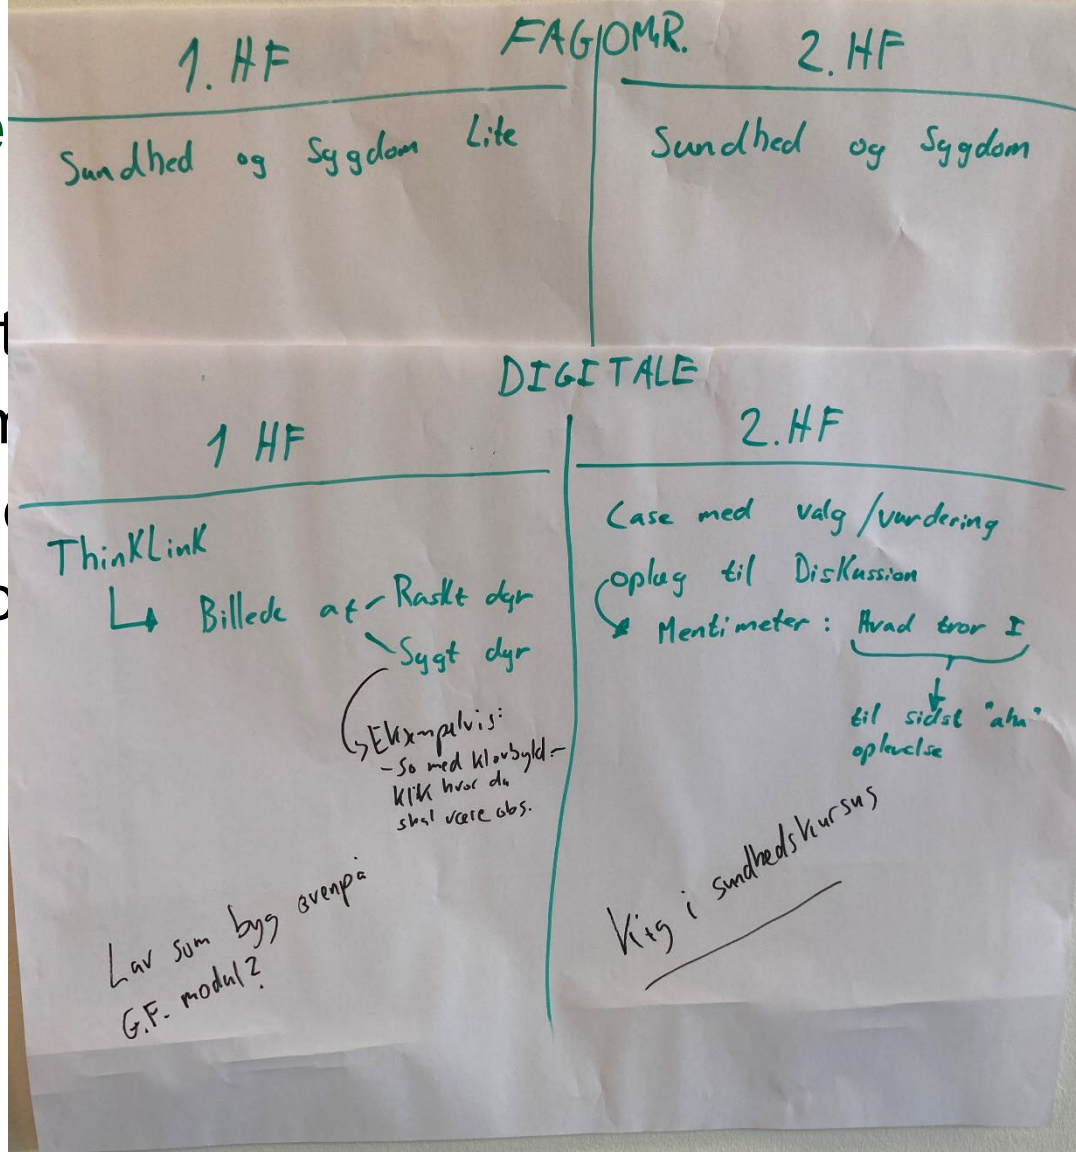 FAGOMR.
1. HF
2. HF
Sundhed og Sygdom Lite
Sundhed og Sygdom
DIGITALE
1 HF
2. HF
ThinkLink
Billede af Raskt dyr
Sygt dyr
Eksempelvis:
- So med klovbyld -
klik hvor du
skal være obs.
Lav som byg ovenpå
G.F. modul?
Case med valg/vurdering
oplæg til Diskussion
Mentimeter: Hvad tror I
til sidst "aha"
oplevelse
Kig i sundhedskursus